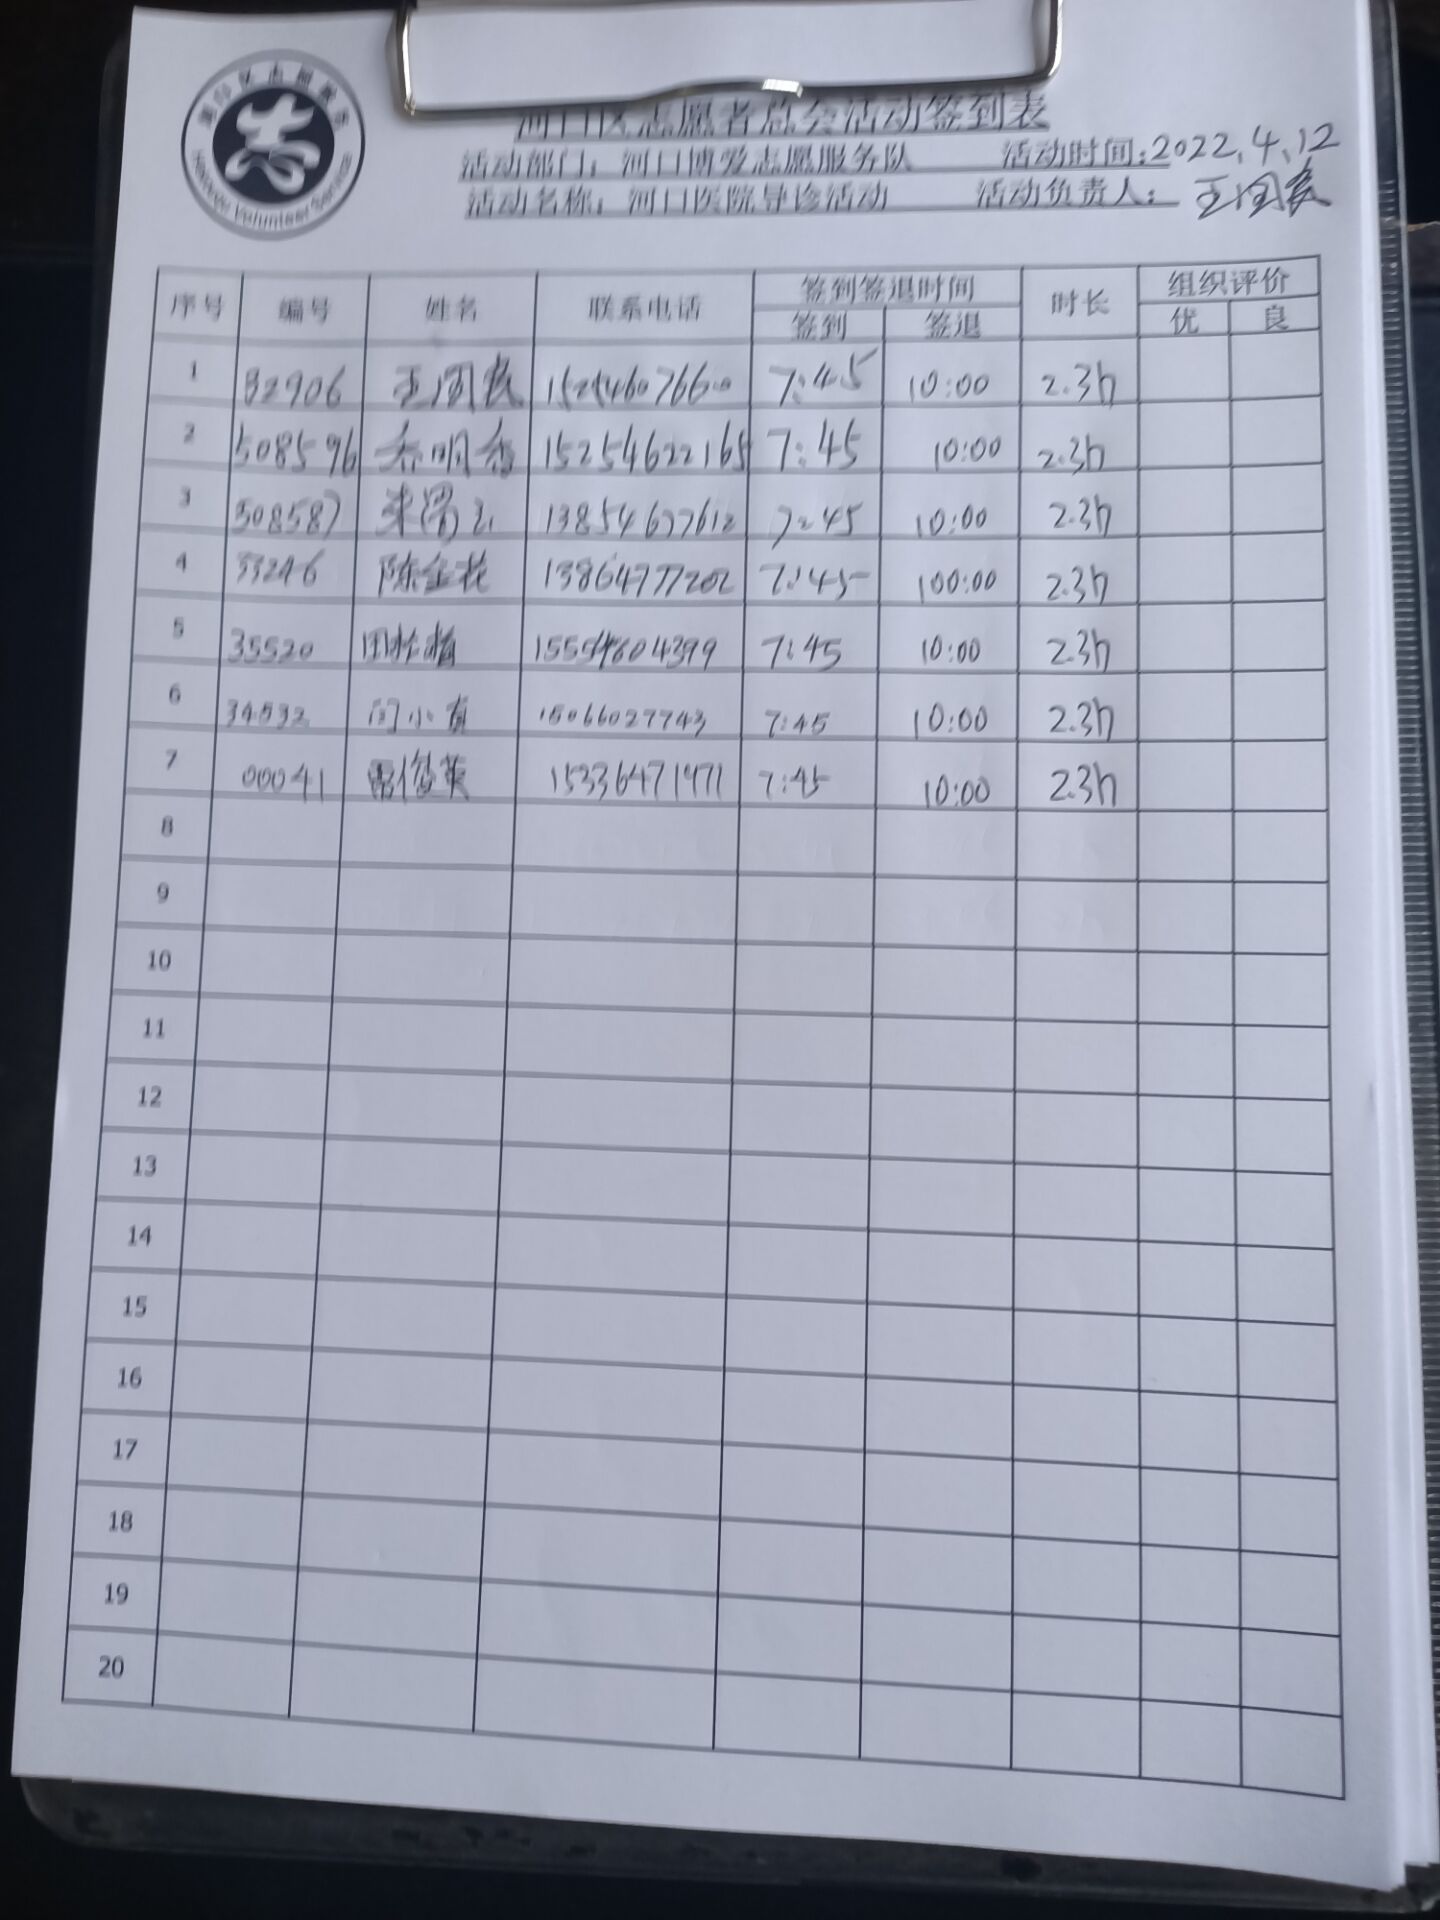 河口区志愿者总会活动签到表
活动部门：河口博爱志愿服务队 活动时间：2022.4.12
活动名称：河口医院导诊活动 活动负责人：王国
Volunteer Service
序号 编号 姓名 联系电话 签到签退时间 时长 组织评价
签到 签退 优 良
1 32906 王国 15254607660 7:45 10:00 2.3h
2 508596 乔明香 15254622165 7:45 10:00 2.3h
3 508587 13854677612 7:45 10:00 2.3h
4 33246 陈金花 13864777202 7:45 100:00 2.3h
5 35520 田 15554604399 7:45 10:00 2.3h
6 34532 闫小 15066027743 7:45 10:00 2.3h
7 00041 英 15336471971 7:45 10:00 2.3h
8
9
10
11
12
13
14
15
16
17
18
19
20